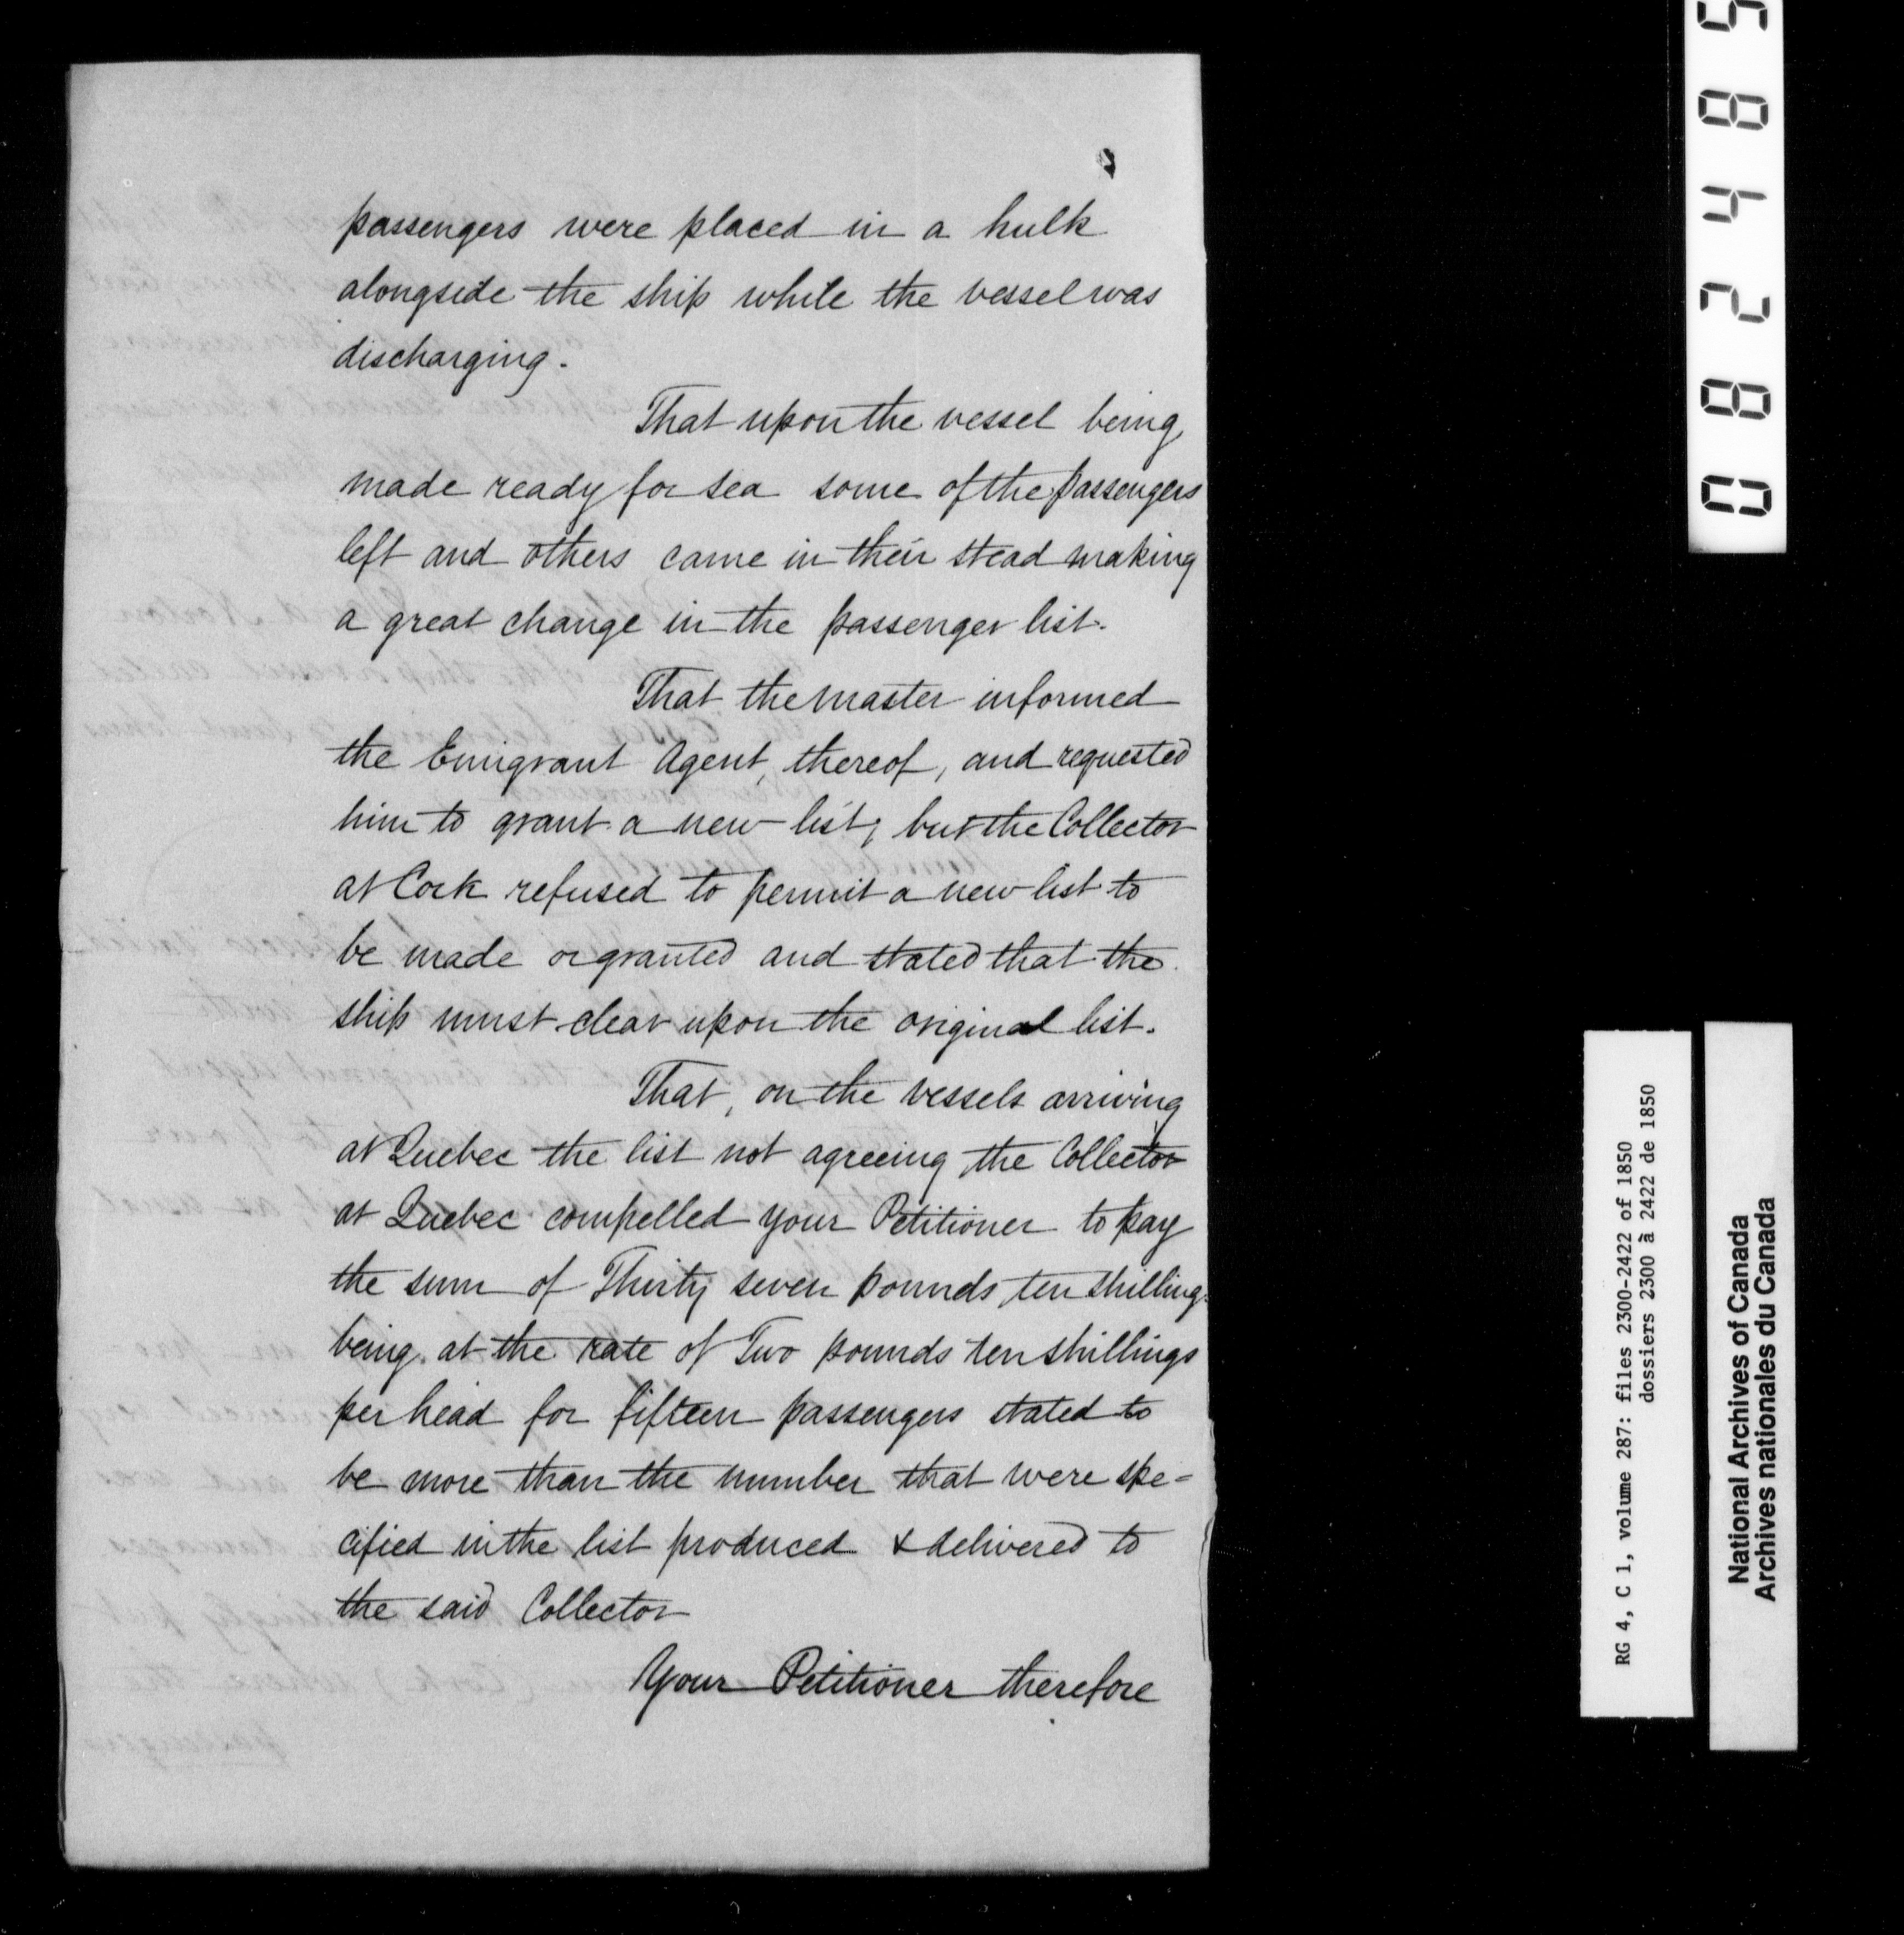 passengers were placed in a hulk
alongside the ship while the vessel was
discharging.
That upon the vessel being
made ready for sea some of the passengers
left and others came in their stead making
a great change in the passenger list.
That the master informed
the Emigrant Agent, thereof, and requested
him to grant a new list; but the Collector
at Cork refused to permit a new list to
be made or granted and stated that the
ship must clear upon the original list.
That, on the vessels arriving
at Quebec the list not agreeing the Collector
at Quebec compelled your Petitioner to pay
the sum of Thirty seven pounds ten shillings
being at the rate of Two pounds ten shillings
per head for fifteen passengers stated to
be more than the number that were spe=
cified in the list produced & delivered to
the said Collector
Your Petitioner therefore
082485
RG 4, C 1, volume 287: files 2300-2422 of 1850
dossiers 2300 à 2422 de 1850
National Archives of Canada
Archives nationales du Canada